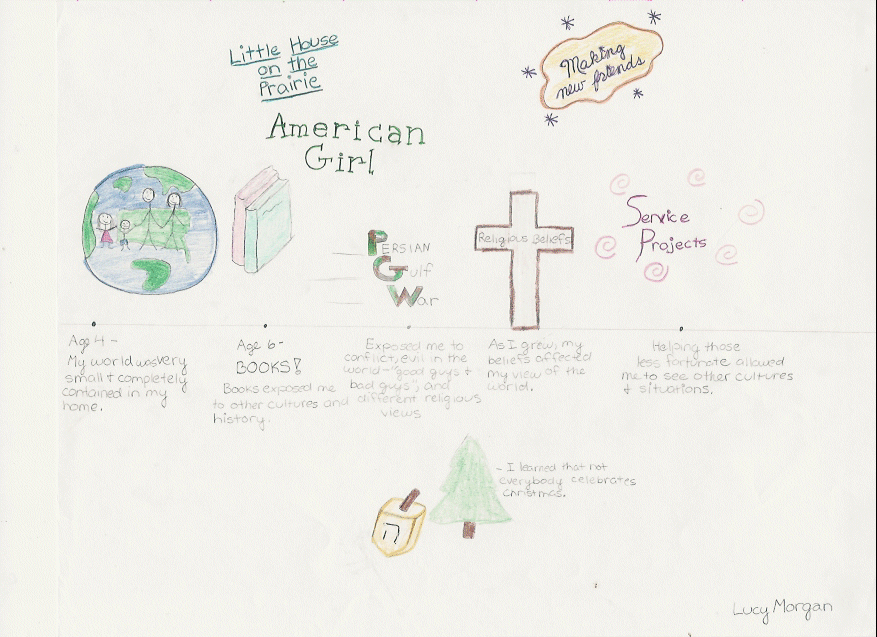 Little House
on the
Prairie
Making
new friends
American
Girl
Religious Beliefs
Service
Projects
Persian
Gulf
War
Age 4 -
My world was very
small + completely
contained in my
home.
Age 6 -
BOOKS!
Books exposed me
to other cultures and
history.
Exposed me to
conflict, evil in the
world - "good guys +
bad guys", and
different religious
views
As I grew, my
beliefs affected
my view of the
world.
Helping those
less fortunate allowed
me to see other cultures
+ situations.
- I learned that not
everybody celebrates
christmas.
ה
Lucy Morgan